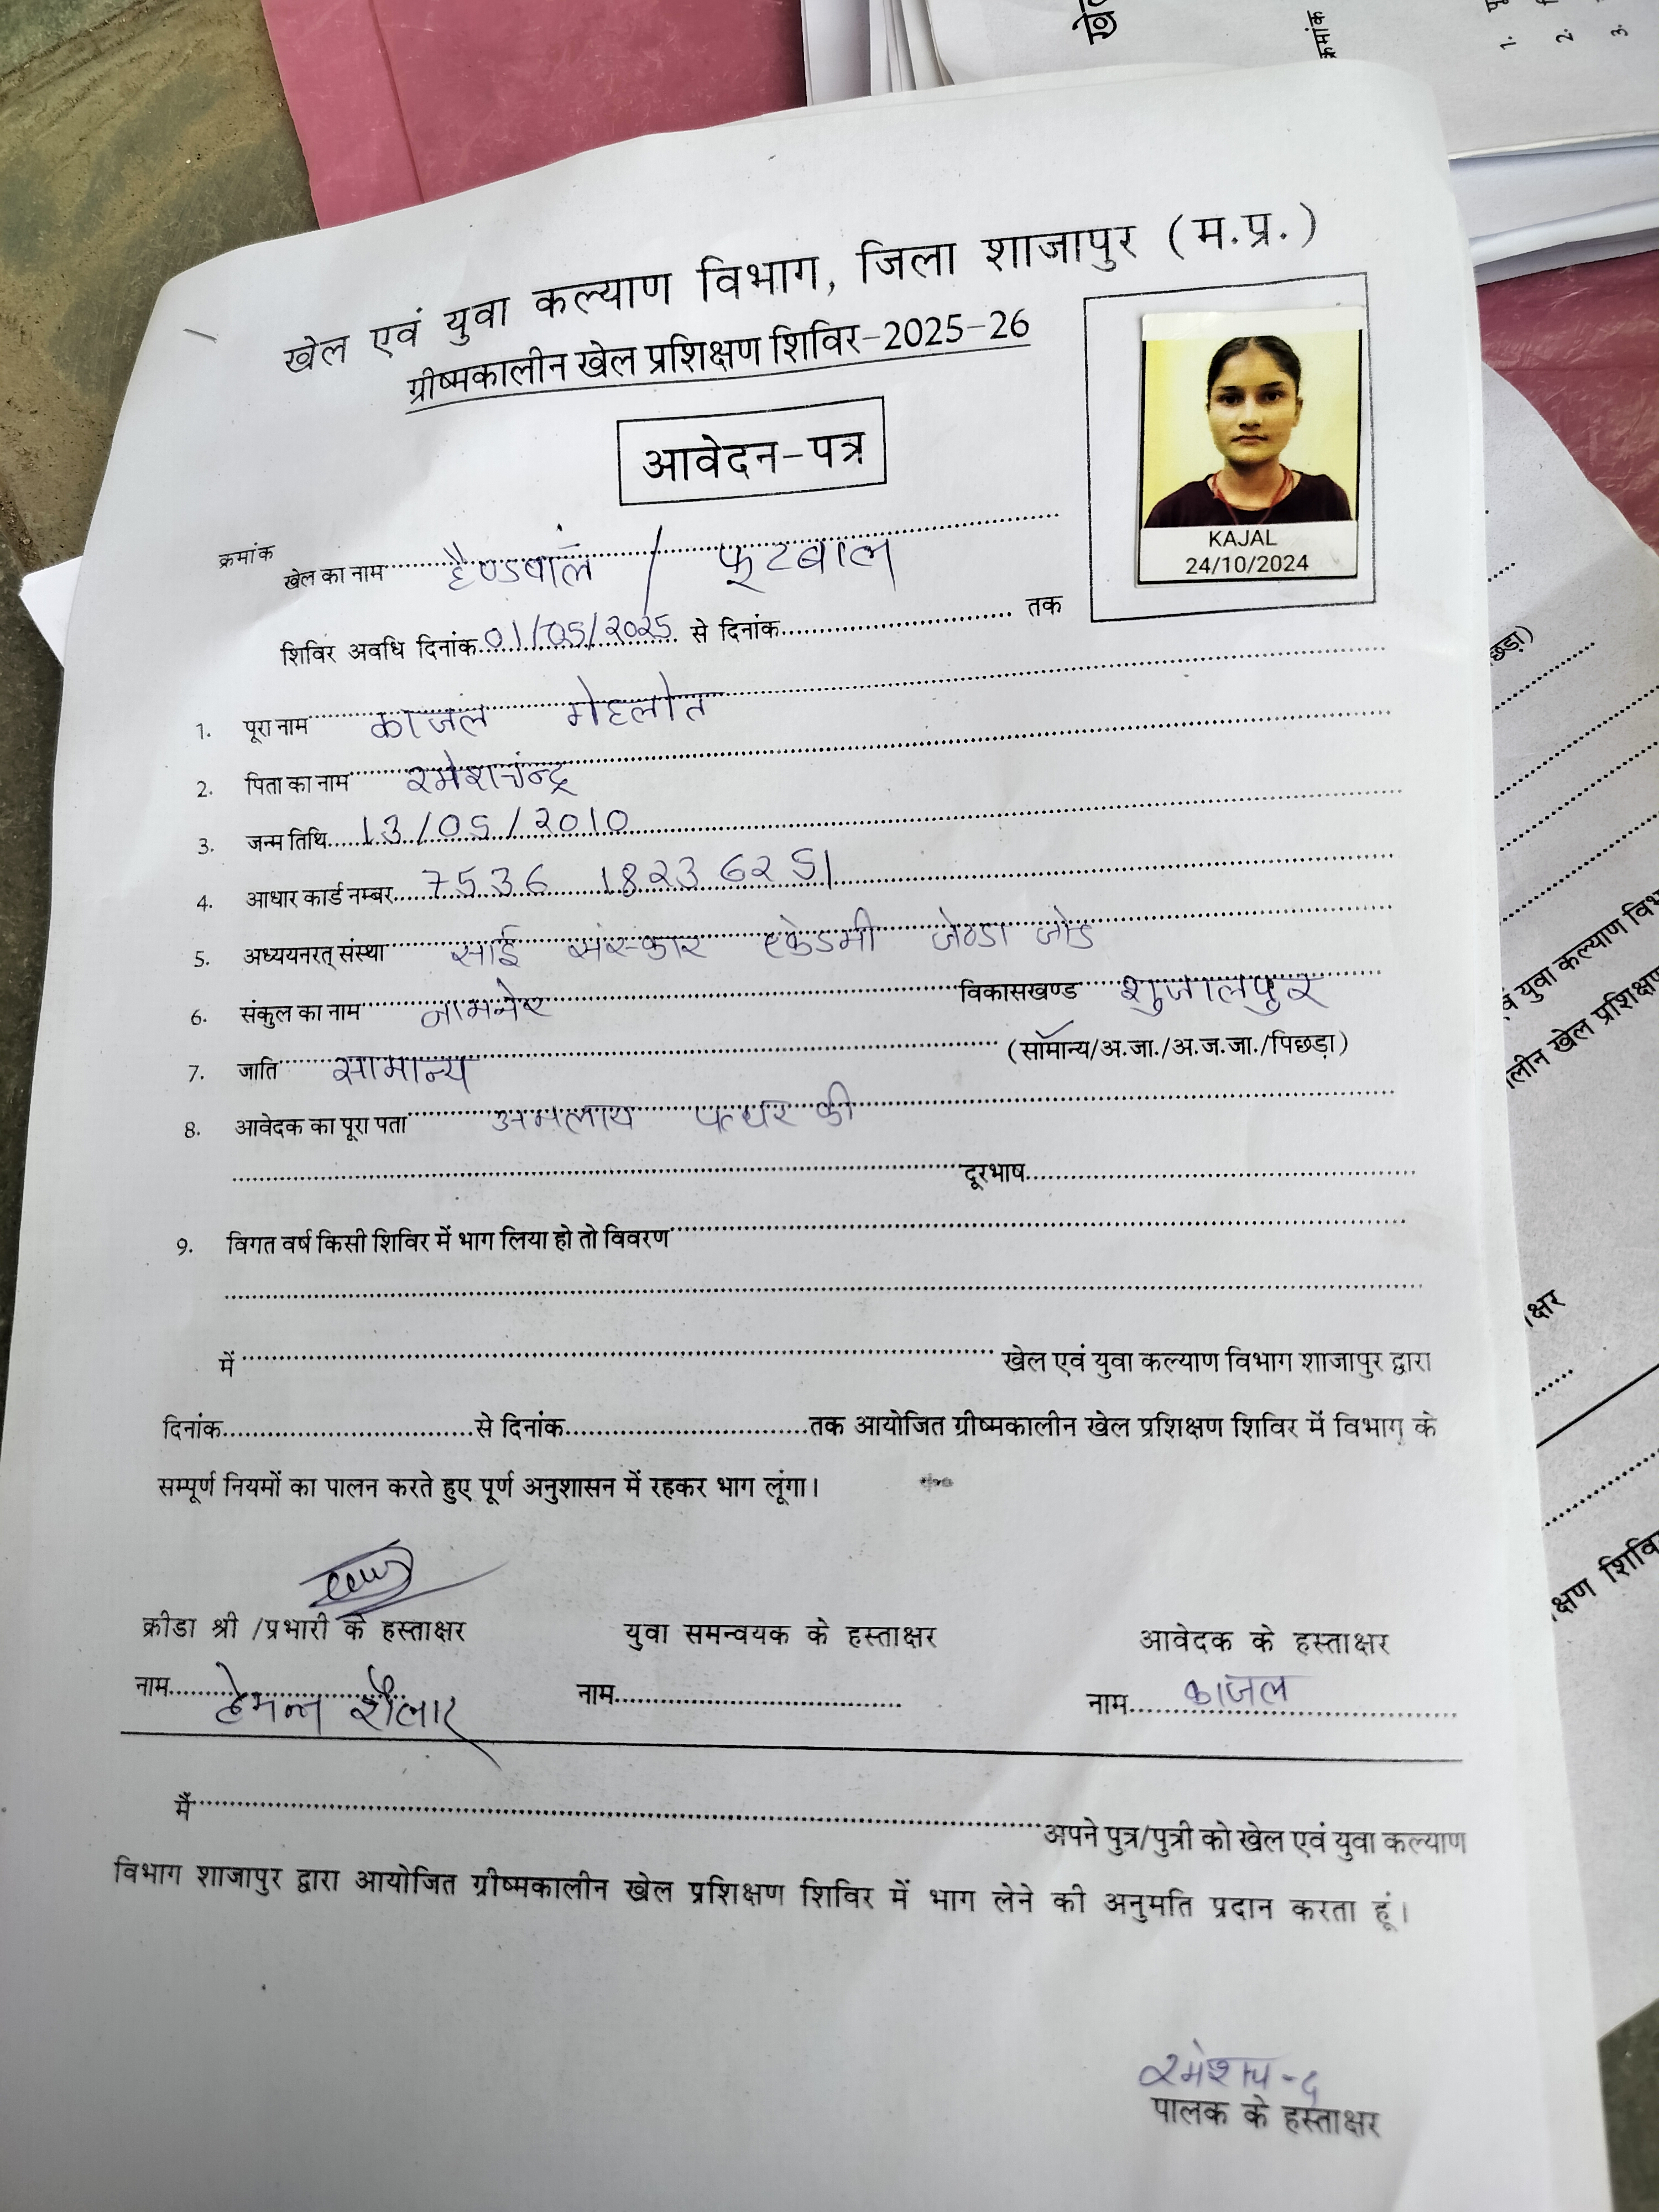 खेल एवं युवा कल्याण विभाग, जिला शाजापुर (म.प्र.)
ग्रीष्मकालीन खेल प्रशिक्षण शिविर-2025-26
आवेदन-पत्र
KAJAL
24/10/2024
क्रमांक
खेल का नाम हैण्डबॉल / फूटबाल
शिविर अवधि दिनांक 01/05/2025 से दिनांक तक
1. पूरा नाम काजल गेहलोत
2. पिता का नाम रमेशचन्द्र
3. जन्म तिथि 13/05/2010
4. आधार कार्ड नम्बर 7536 1823 6251
5. अध्ययनरत् संस्था साई संस्कार एकेडमी जेठडा जोड
6. संकुल का नाम विकासखण्ड शुजालपुर
7. जाति सामान्य (सामान्य/अ.जा./अ.ज.जा./पिछड़ा)
8. आवेदक का पूरा पता अमलाय पत्थर की
दूरभाष
9. विगत वर्ष किसी शिविर में भाग लिया हो तो विवरण
में खेल एवं युवा कल्याण विभाग शाजापुर द्वारा
दिनांक से दिनांक तक आयोजित ग्रीष्मकालीन खेल प्रशिक्षण शिविर में विभाग के
सम्पूर्ण नियमों का पालन करते हुए पूर्ण अनुशासन में रहकर भाग लूंगा।
क्रीडा श्री /प्रभारी के हस्ताक्षर युवा समन्वयक के हस्ताक्षर आवेदक के हस्ताक्षर
नाम हेमन्त नाम नाम काजल
मैं अपने पुत्र/पुत्री को खेल एवं युवा कल्याण
विभाग शाजापुर द्वारा आयोजित ग्रीष्मकालीन खेल प्रशिक्षण शिविर में भाग लेने की अनुमति प्रदान करता हूं।
रमेशचन्द्र
पालक के हस्ताक्षर